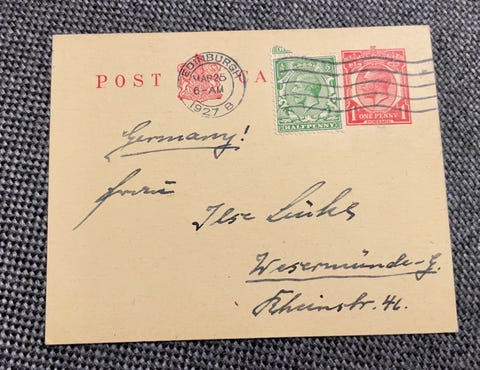 POST CA
EDINBURGH
MAR 25
6-AM
1927 B
HALFPENNY
1 ONE PENNY
Germany!
Frau
Ilse
Wesermünde-G.
Rheinstr. 41.